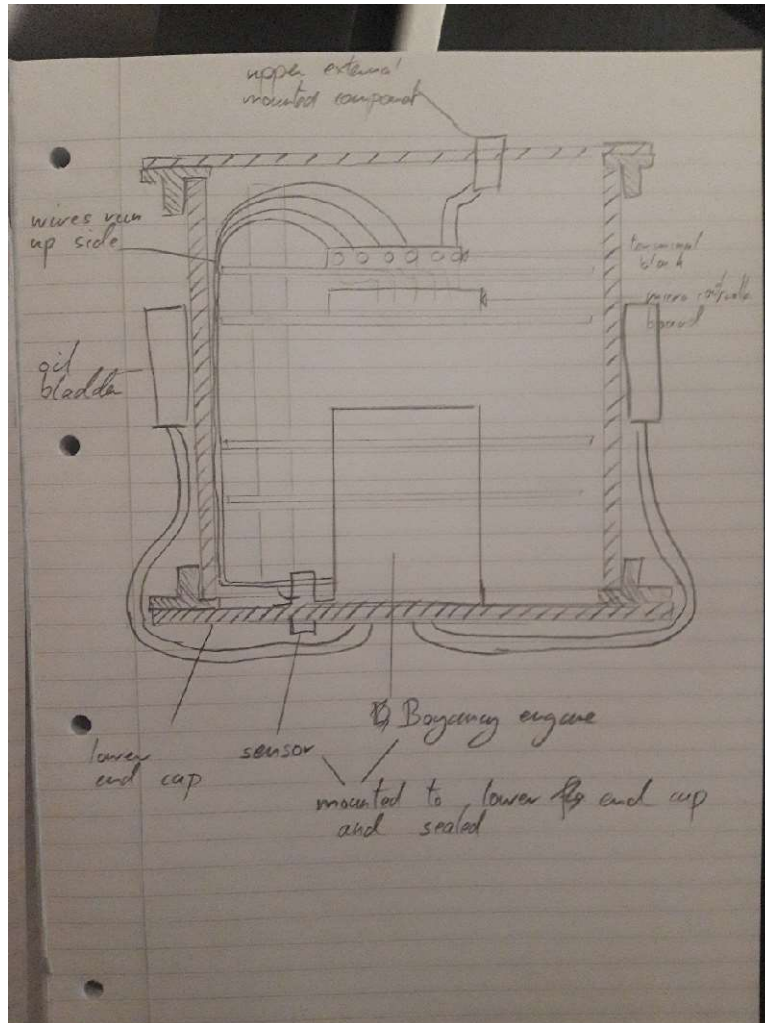 upper external
mounted component
wires run
up side
terminal
block
micro controlle
board
oil
bladder
Boyancy engine
lower
end cap
sensor
mounted to lower end cap
and sealed